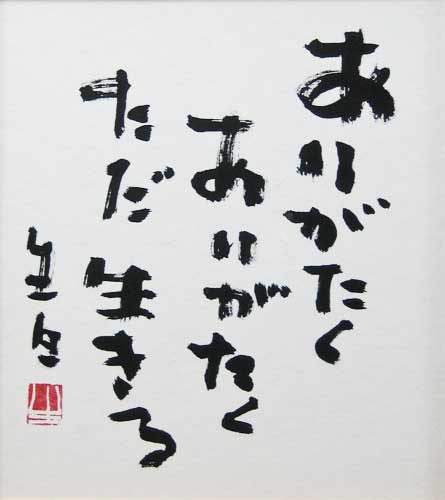 ありがたく
ありがたく
ただ生きる